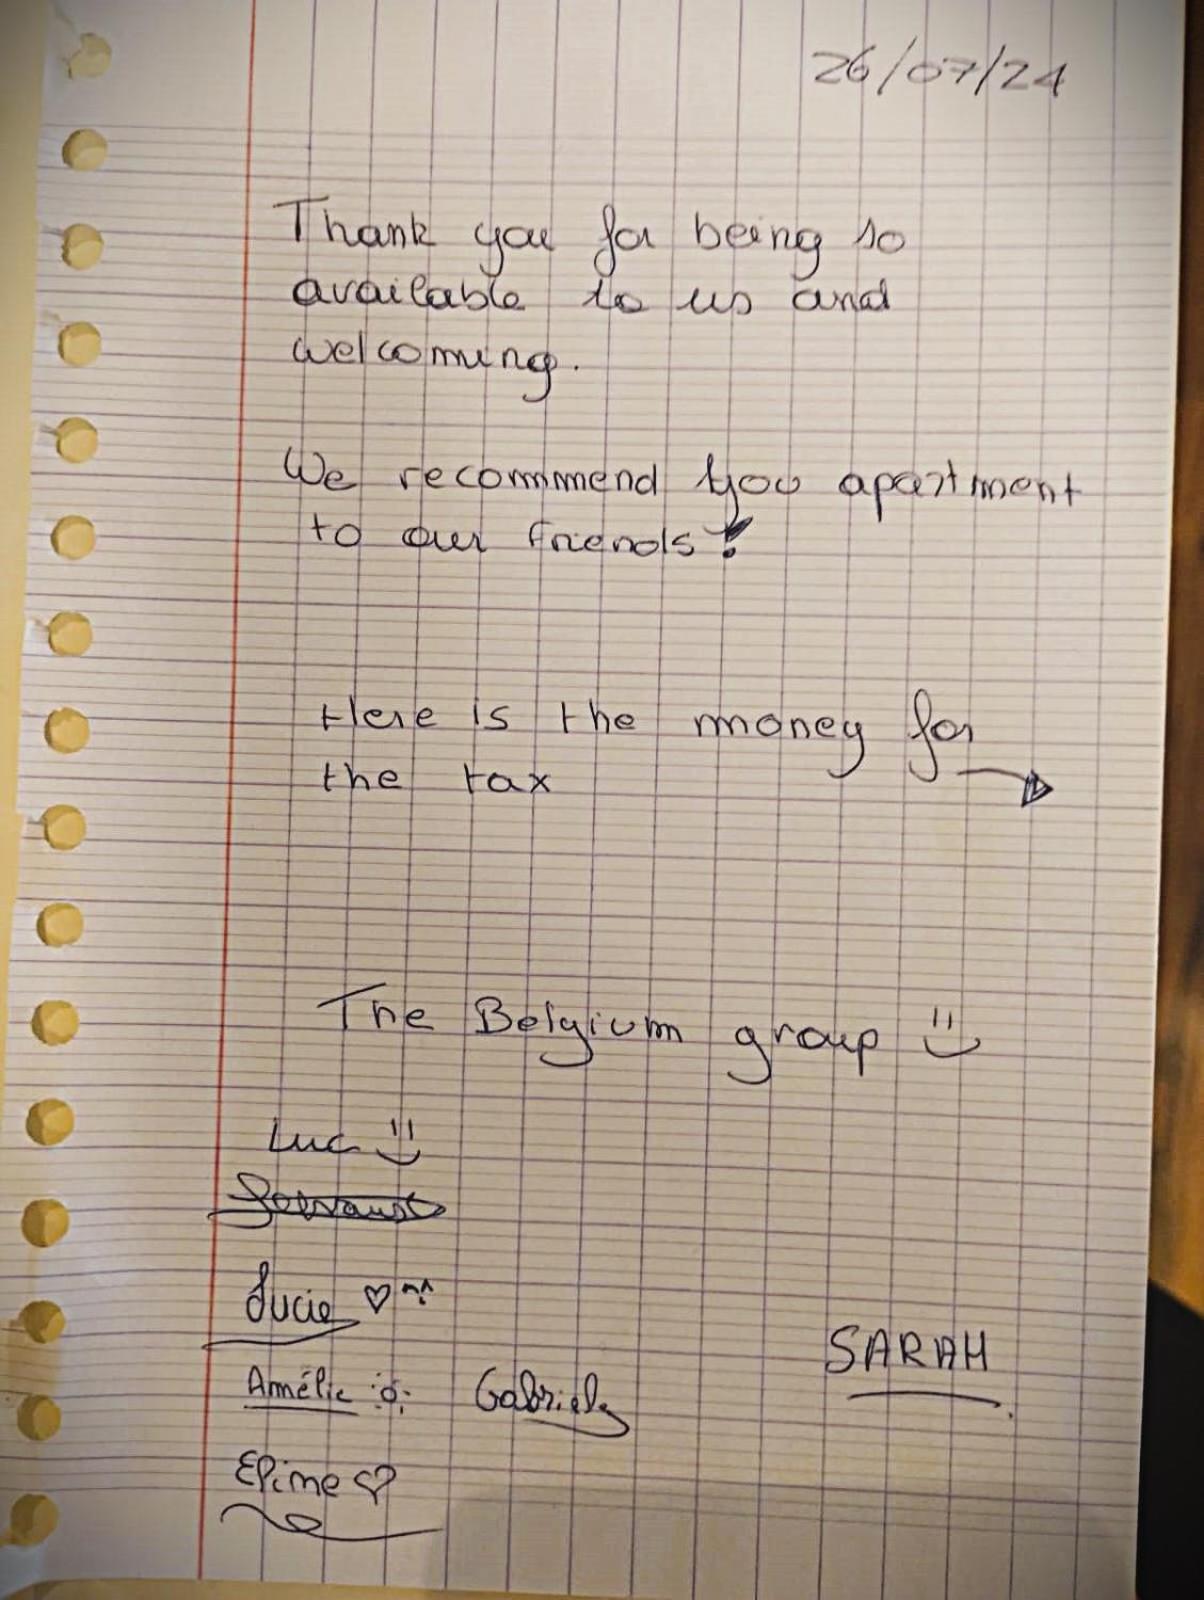 26/07/24
Thank you for being so
available to us and
welcoming.
We recommend you apartment
to our friends!
Here is the money for
the tax
The Belgium group
Luc
Lucie ♡ ^^
Amélie Gabriely
SARAH
♡